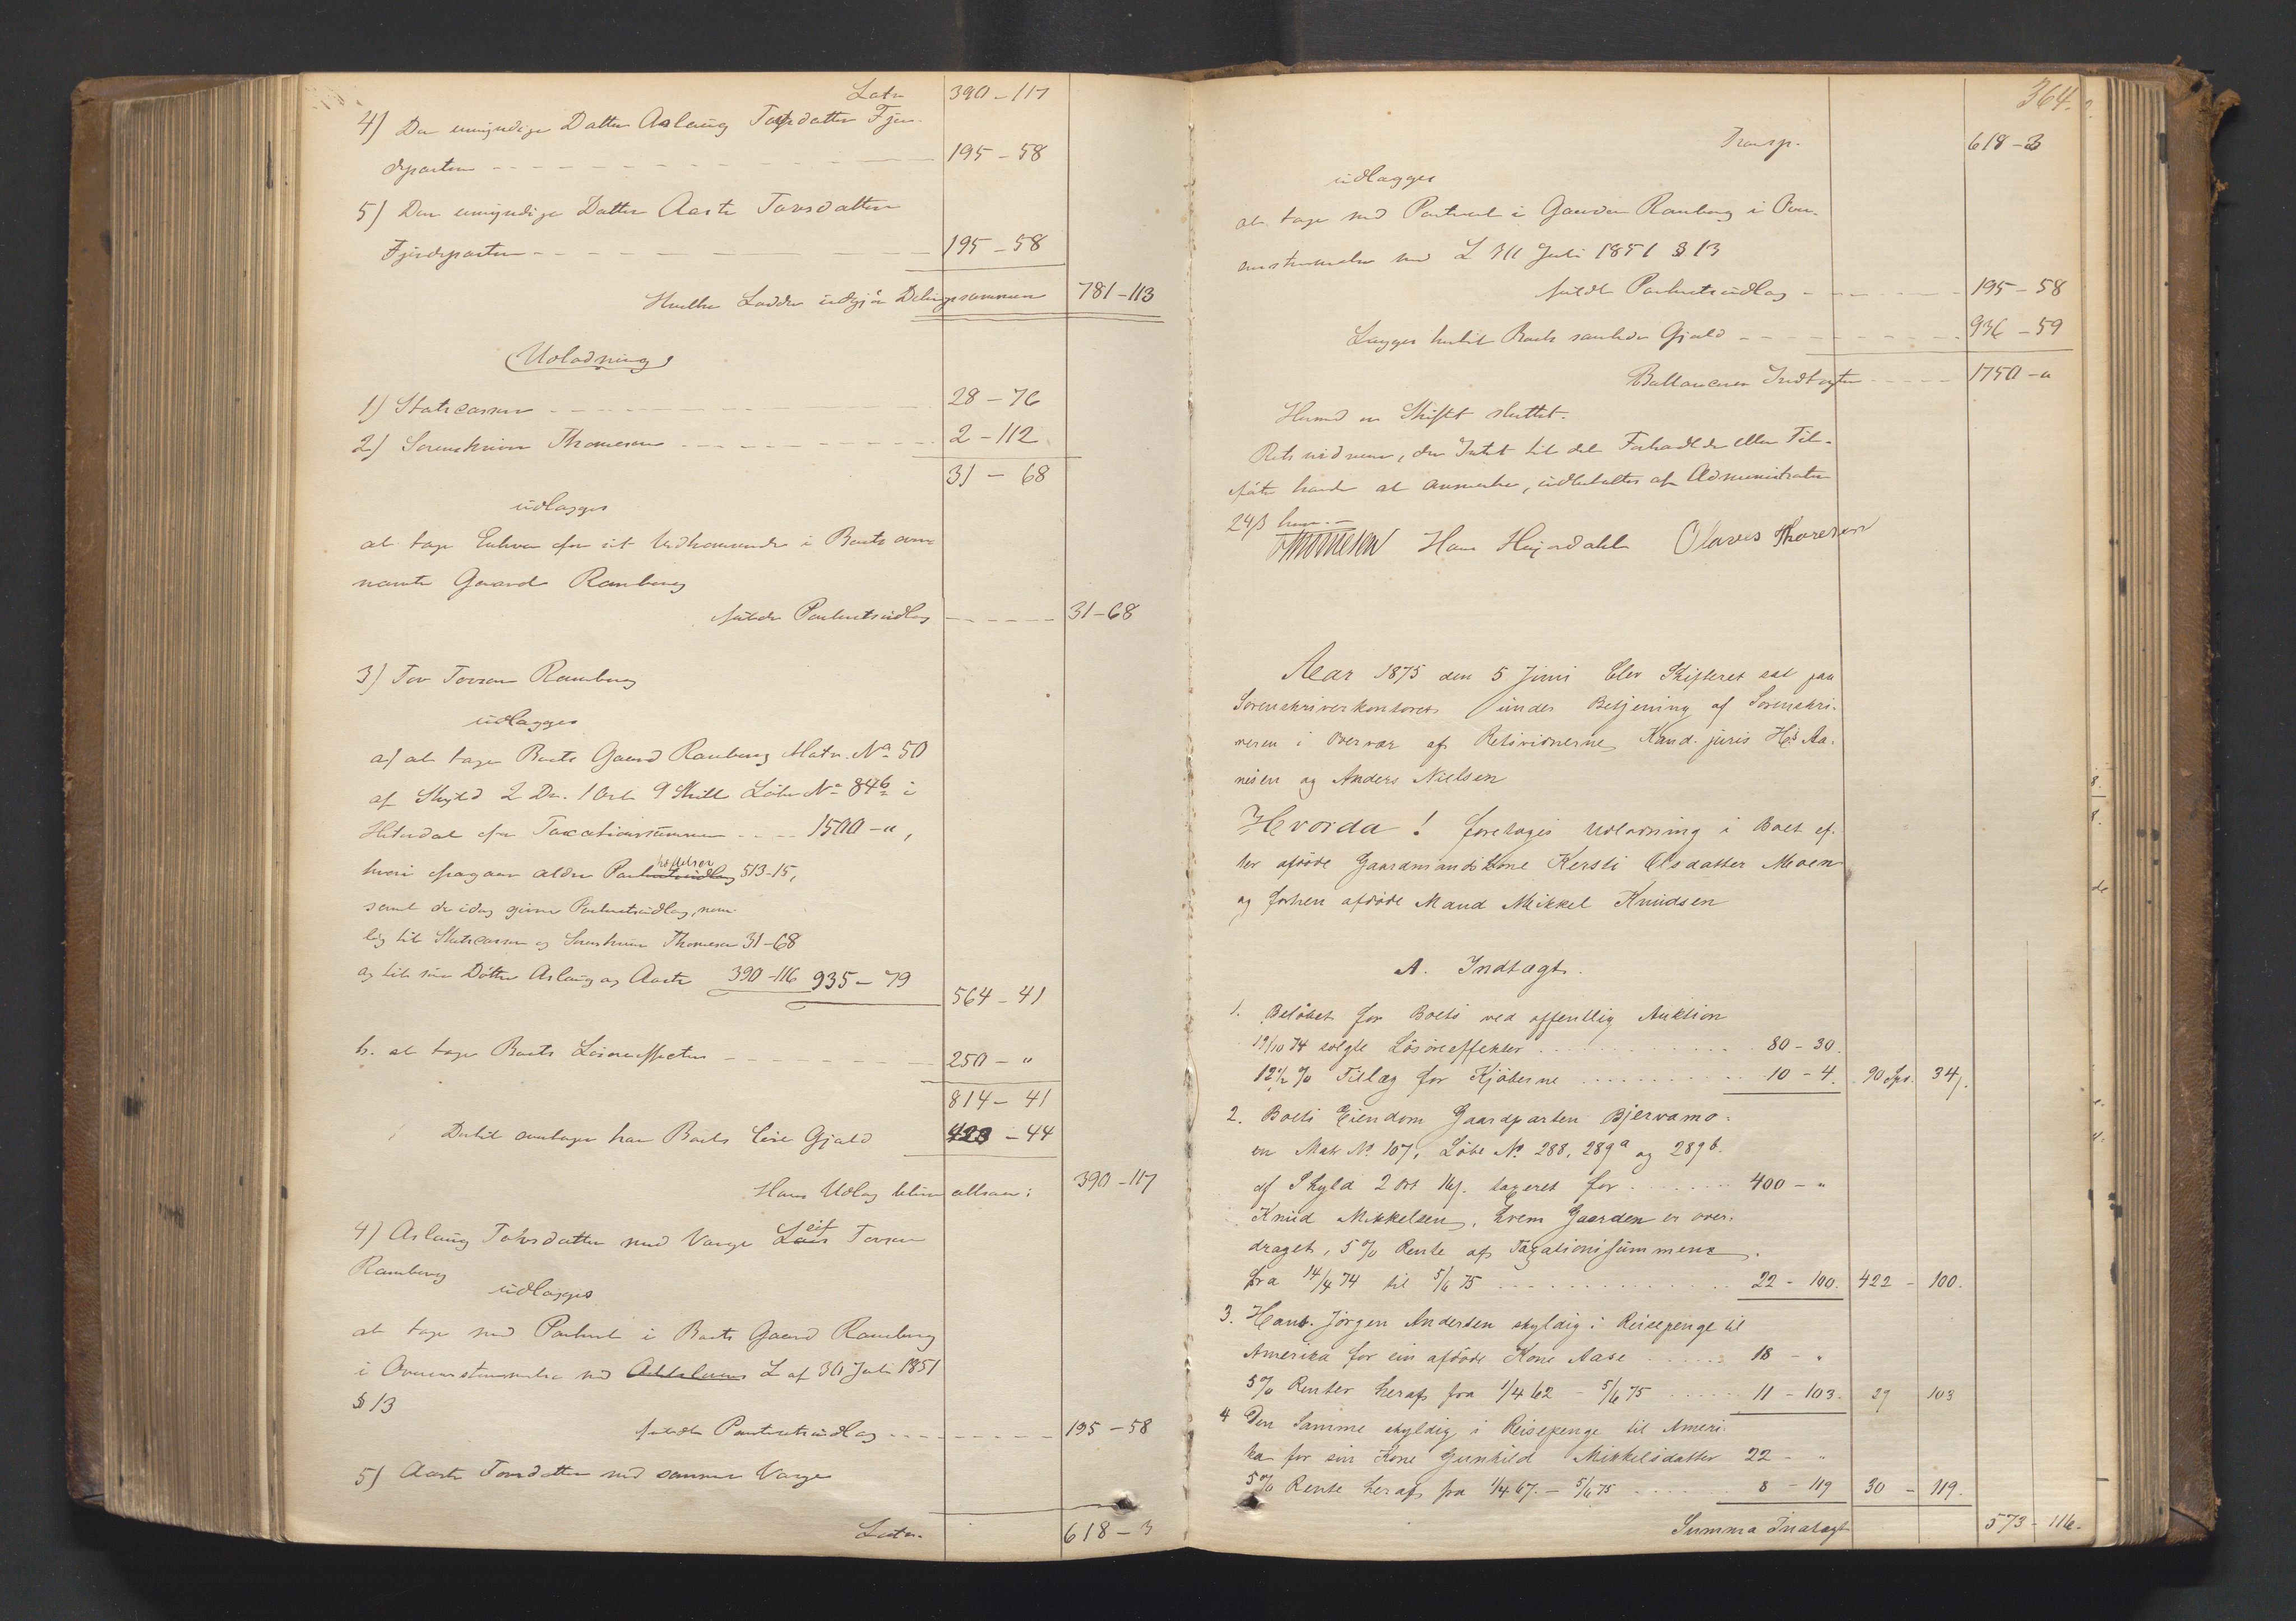 Latr 390 – 117
4) Den umyndige Datter Aslaug Tovsdatter Fjer-
departen 195 – 58
5) Den umyndige Datter Aaste Tovsdatter
Fjerdeparten 195 – 58
Hvilke Lodder udgjør Delingssummen 781 – 113
Udlodning
1) Statscassen 28 – 76
2) Sorenskriver Thomesen 2 – 112
31 – 68
udlægges
at tage Enhver for sit Vedkommende i Boets oven-
nævnte Gaard Ramberg
saadan Panteretsudlæg 31 – 68
3) Tov Tovsen Ramberg
udlægges
a) at tage Boets Gaard Ramberg Matr. No 50
af Skyld 2 Dr. 1 Ort 9 Skill Løbe No 84b i
Hiterdal for Taxationssummen 1500 – „,
hvori fragaar ældre Panteheftelser 513-15,
samt de idag givne Panteretsudlæg, nem-
lig til Statscassen og Sorenskriver Thomesen 31-68
og til sine Døttre Aslaug og Aaste 390 -116 935 – 79
564 – 41
b. at tage Boets Løsøreeffecter 250 – „
814 – 41
Dertil overtager han Boets Gjæld 423 – 44
Hans Udlæg bliver altsaa: 390 – 117
4) Aslaug Tovsdatter med Værge Leif Tovsen
Ramberg
udlægges
at tage med Panteret i Boets Gaard Ramberg
i Overensstemmelse med L af 30 Juli 1851
§ 13
saadan Panteretsudlæg 195 – 58
5) Aaste Tovsdatter med samme Værge
Latr. 618 – 3
364.
Transp. 618 – 3
udlægges
at tage med Panteret i Gaarden Ramberg i Over-
ensstemmelse med L 30 Juli 1851 § 13
saadan Panteretsudlæg 195 – 58
Lægges hertil Boets samlede Gjæld 936 – 59
Ballancerer Indtægten 1750 – „
Hermed er Skiftet sluttet.
Retsvidnerne, der Intet til det Forhandlede eller Til-
førte havde at anmærke, udbetaltes af Administrator
24 β hver. –
Thomesen Hans Heyerdahl Olaves Thoresen
Aar 1875 den 5 Juni blev Skifteret sat paa
Sorenskriverkontoret under Betjening af Sorenskri-
veren i Overvær af Retsvidnerne Kand. juris Hs Aa-
nesen og Anders Nielsen
Hvorda! foretoges Udlodning i Boet ef-
ter afdøde Gaardmandskone Kersti Olsdatter Moen
og forhen afdøde Mand Mikkel Knudsen
A. Indtægt.
1. Beløbet for Boets ved offentlig Auktion
19/10 74 solgte Løsøreeffekter 80 – 30.
12½ % Tillæg for Kjøberne 10 – 4. 90 Spd. 34 β.
2. Boets Eiendom Gaardparten Bjervamo-
en Matr No. 107, Løbe No. 288, 289a og 289b.
af Skyld 2 Ort 16 β. taxeret for 400 – „
Knud Mikkelsen, hvem Gaarden er over-
draget, 5 % Rente af Taxationssummens
fra 14/4 74 til 5/6 75 22 – 100. 422 – 100.
3. Hans Jørgen Andersen skyldig i Reisepenge til
Amerika for sin afdøde Kone Aase 18 – „
5 % Renter heraf fra 1/4 62 – 5/6 75 11 – 103. 29 103
4 Den Samme skyldig i Reisepenge til Ameri-
ka for sin Kone Gunhild Mikkelsdatter 22 – „
5 % Rente heraf fra 1/4 67. – 5/6 75 8 – 119 30 – 119.
Summa Indtægt 573 – 116.